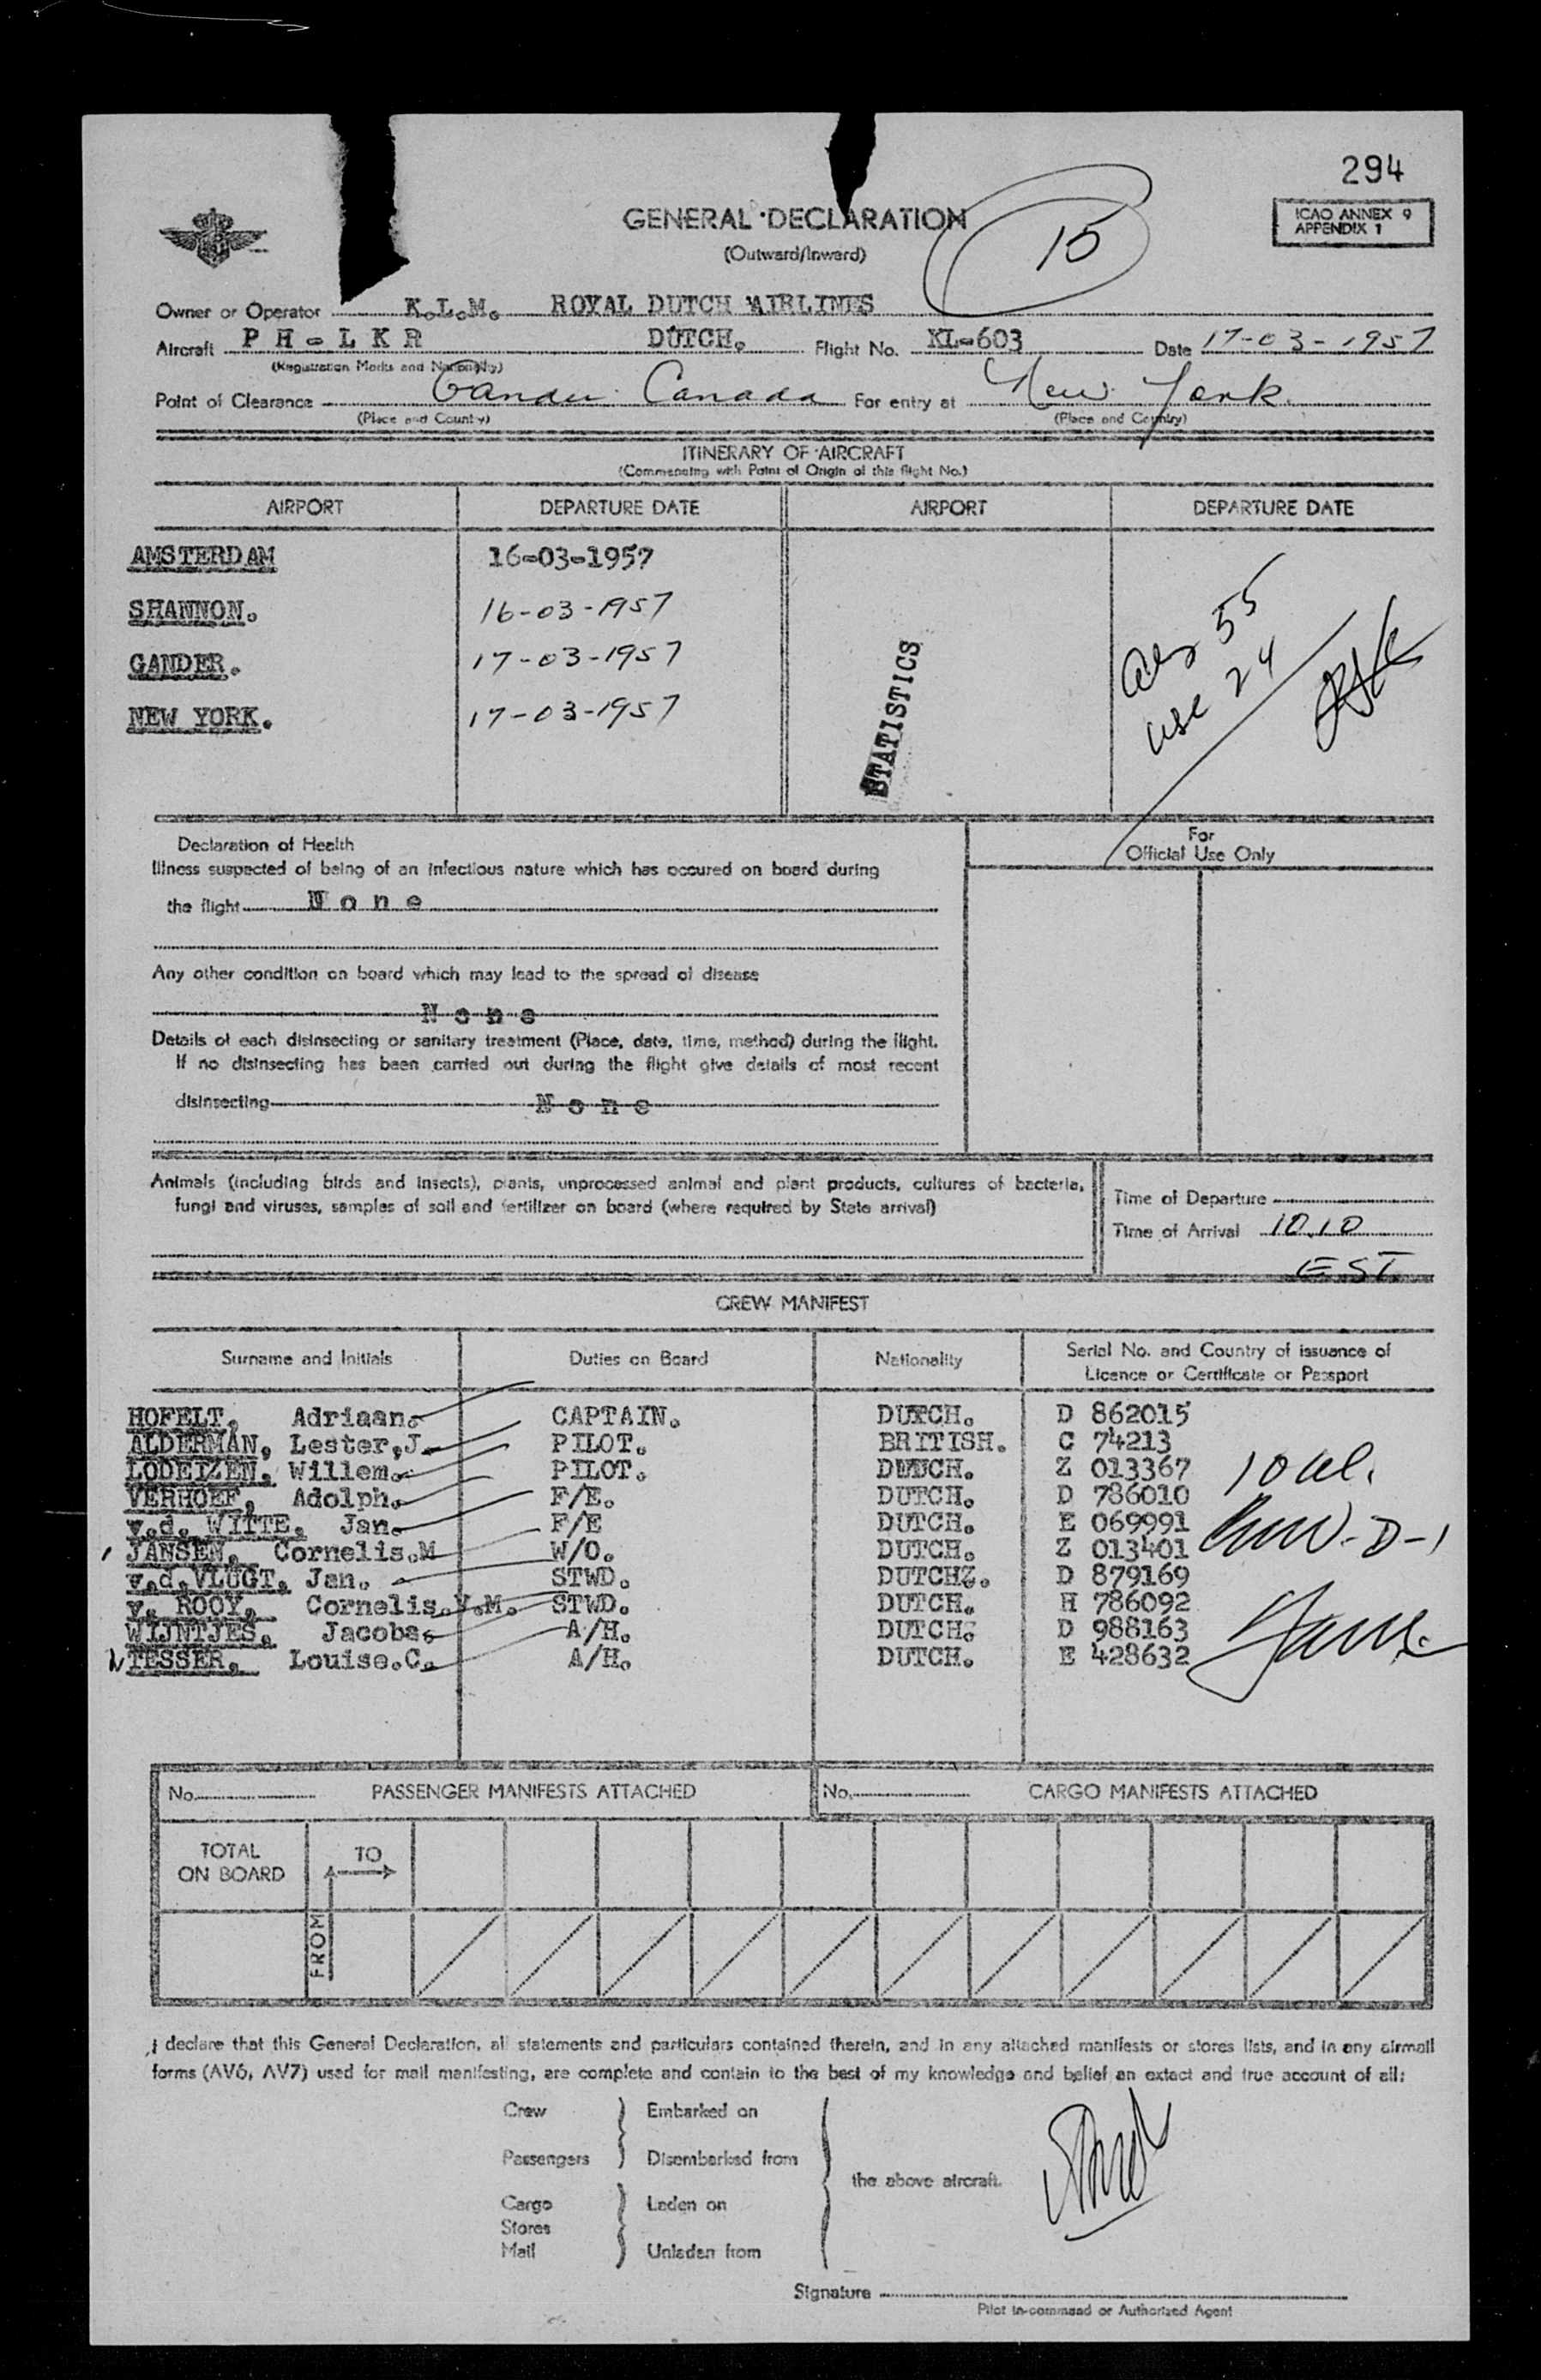 294
GENERAL DECLARATION
(Outward/Inward)
15
ICAO ANNEX 9
APPENDIX 1
Owner or Operator K.L.M. ROYAL DUTCH AIRLINES
Aircraft P H - L K R DUTCH. Flight No. KL-603 Date 17-03-1957
(Registration Marks and Nationality)
Point of Clearance Gander Canada For entry at New York.
(Place and Country) (Place and Country)
ITINERARY OF AIRCRAFT
(Commencing with Point of Origin of this flight No.)
AIRPORT DEPARTURE DATE AIRPORT DEPARTURE DATE
AMSTERDAM 16-03-1957
SHANNON. 16-03-1957
GANDER. 17-03-1957
NEW YORK. 17-03-1957
STATISTICS
55
usc 24
Declaration of Health
Illness suspected of being of an infectious nature which has occured on board during
the flight N o n e
For
Official Use Only
Any other condition on board which may lead to the spread of disease
N o n e
Details of each disinsecting or sanitary treatment (Place, date, time, method) during the flight.
If no disinsecting has been carried out during the flight give details of most recent
disinsecting N o n e
Animals (including birds and insects), plants, unprocessed animal and plant products, cultures of bacteria,
fungi and viruses, samples of soil and fertilizer on board (where required by State arrival)
Time of Departure
Time of Arrival 10.10
EST
CREW MANIFEST
Surname and Initials Duties on Board Nationality Serial No. and Country of issuance of
Licence or Certificate or Passport
HOFELT. Adriaan. CAPTAIN. DUTCH. D 862015
ALDERMAN, Lester,J. PILOT. BRITISH. C 74213
LODEIZEN. Willem. PILOT. DUTCH. Z 013367
VERHOEF, Adolph. F/E. DUTCH. D 786010
v.d. WITTE. Jan. F/E DUTCH. E 069991
JANSEN. Cornelis.M W/O. DUTCH. Z 013401
v.d.VLUGT. Jan. STWD. DUTCHZ. D 879169
v. ROOY. Cornelis.V.M. STWD. DUTCH. H 786092
WIJNTJES. Jacoba. A/H. DUTCH. D 988163
TESSER. Louise.C. A/H. DUTCH. E 428632
D-1
No. PASSENGER MANIFESTS ATTACHED No. CARGO MANIFESTS ATTACHED
TOTAL
ON BOARD
TO
FROM
I declare that this General Declaration, all statements and particulars contained therein, and in any attached manifests or stores lists, and in any airmail
forms (AV6, AV7) used for mail manifesting, are complete and contain to the best of my knowledge and belief an extact and true account of all:
Crew Embarked on
Passengers Disembarked from
the above aircraft.
Cargo Laden on
Stores
Mail Unladen from
Signature
Pilot in-command or Authorized Agent